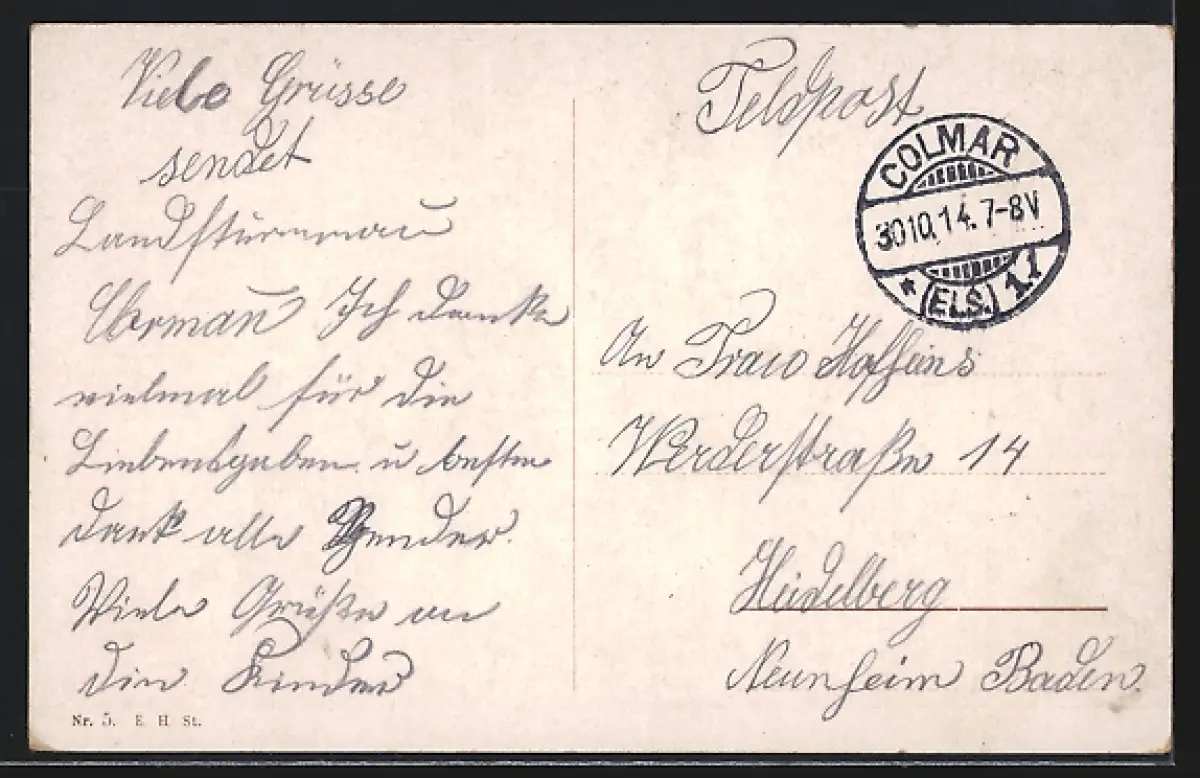 Viele Grüsse
sendet
Landsturmmañ
Ich danke
vielmal für die
Liebensgaben u besten
dank alle Spender.
Viele Grüße an
die Kinder
Nr. 5. E. H. St.
Feldpost
COLMAR
30.10.14.7-8V
* (ELS.) 11
An Frau Hoffeins
Werderstraße 14
Heidelberg
Neunheim Baden.